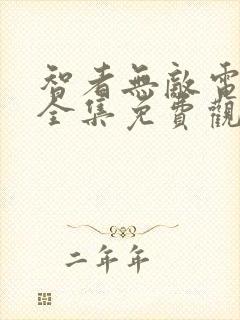 智者無敵電
全集免費觀
二年年